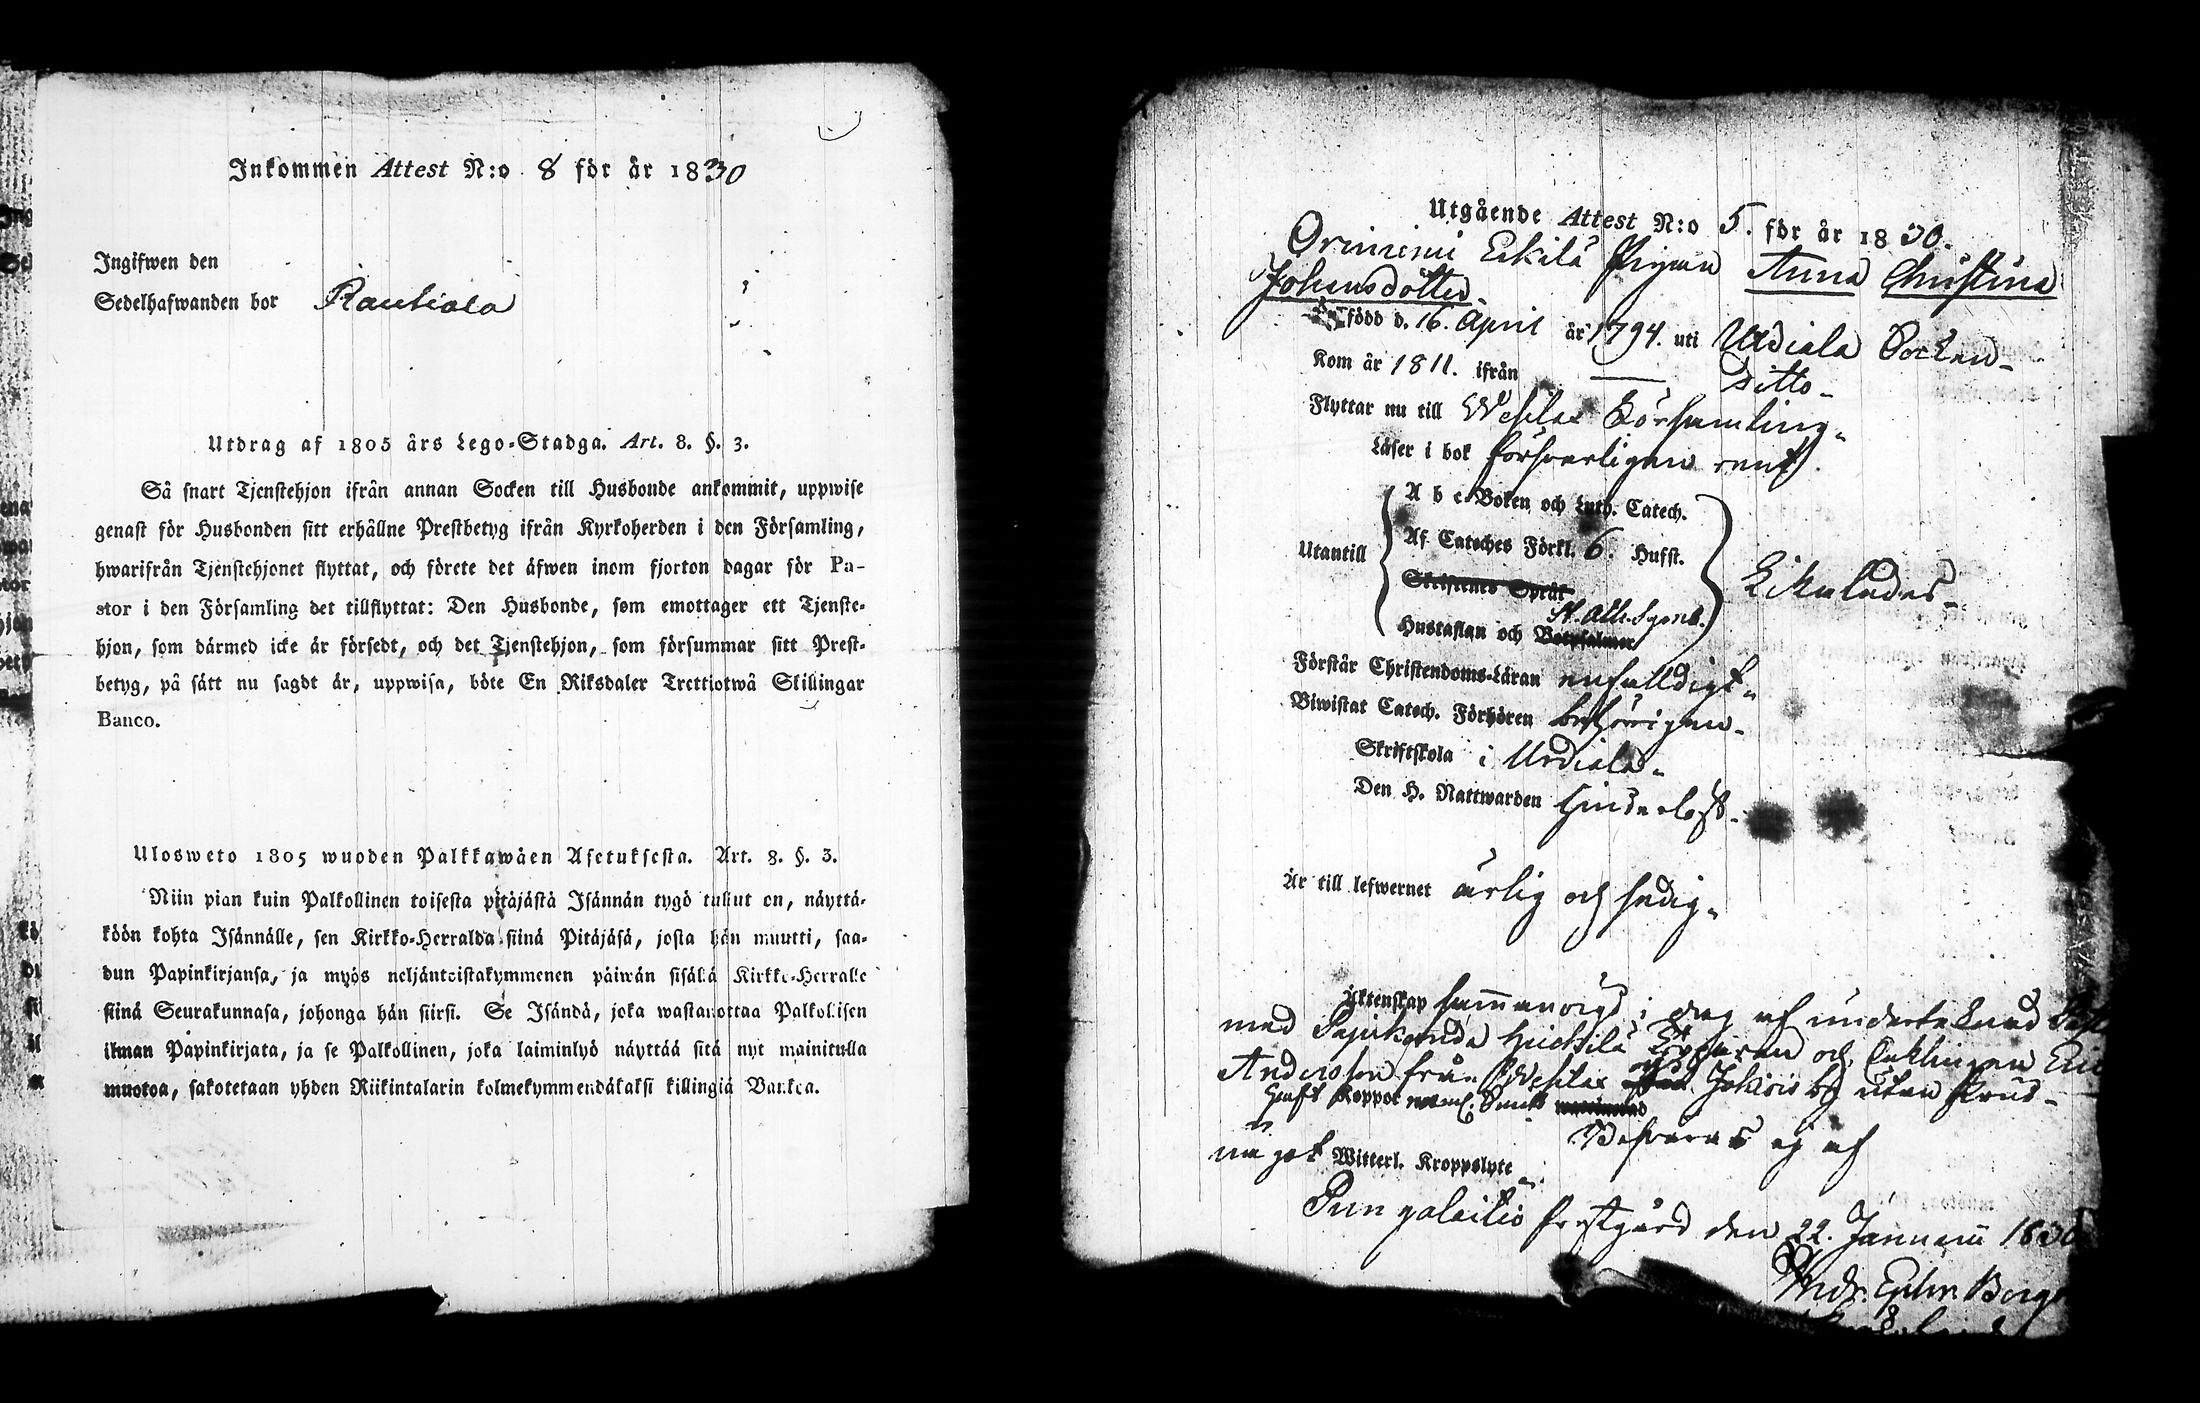 Inkommen Attest N:o 8 för år 1830
Ingifwen den
Sedelhafwanden bor Rautiala
Utdrag af 1805 års Lego-Stadga. Art. 8. §. 3.
Så snart Tjenstehjon ifrån annan Socken till Husbonde ankommit, uppwise
genast för Husbonden sitt erhållne Prestbetyg ifrån Kyrkoherden i den Församling,
hwarifrån Tjenstehjonet flyttat, och förete det äfwen inom fjorton dagar för Pa-
stor i den Församling det tillflyttat: Den Husbonde, som emottager ett Tjenste-
hjon, som därmed icke är försedt, och det Tjenstehjon, som försummar sitt Prest-
betyg, på sätt nu sagdt är, uppwisa, böte En Riksdaler Trettiotwå Skillingar
Banco.
Ulosweto 1805 wuoden Palkkawäen Asetuksesta. Art. 8. §. 3.
Niin pian kuin Palkollinen toisesta pitäjästä Isännän tygö tullut on, näyttä-
köön kohta Isännälle, sen Kirkko-Herralda siinä Pitäjäsä, josta hän muutti, saa-
dun Papinkirjansa, ja myös neljäntoistakymmenen päiwän sisällä Kirkko-Herralle
siinä Seurakunnasa, johonga hän siirsi. Se Isändä, joka wastanottaa Palkollisen
ilman Papinkirjata, ja se Palkollinen, joka laiminlyö näyttää sitä nyt mainitulla
muotoa, sakotetaan yhden Riikintalarin kolmekymmendäkaksi killingiä Bankoa.
Utgående Attest N:o 5. för år 1830.
Oriniemi Eskilä Pigan Anna Christina
Johansdotter
född d. 16. April år 1794. uti Urdiala Socken
Kom år 1811. ifrån Ditto
Flyttar nu till Wesilax Församling
Läser i bok försvarligen rent.
A b c-Boken och Luth. Catech.
Utantill Af Cateches Förkl. 6. Hufst.
Skriftenes Språk Likaledes
St. Ath. Symb.
Hustaflan och Botpsalmer
Förstår Christendoms-Läran enfalldigt
Biwistat Catech. Förhören behörigen
Skriftskola i Urdiala
Den H. Nattwarden hinderlöst
Är till lefwernet ärlig och sedig
Äktenskap sammanvigd i dag af undertecknad
med och Enklingen
Andersson från Wesilax Jokisis by utan
Haft Koppor naml.
Besväras ej af
något Witterl. Kroppslyte
Pungalaitio Prestgård den 22. Januarii 1830
Andr. Ephr.